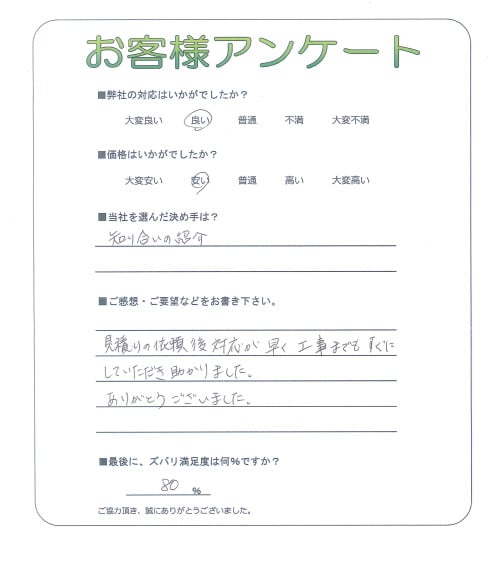 お客様アンケート
■弊社の対応はいかがでしたか？
大変良い 良い 普通 不満 大変不満
■価格はいかがでしたか？
大変安い 安い 普通 高い 大変高い
■当社を選んだ決め手は？
知り合いの紹介
■ご感想・ご要望などをお書き下さい。
見積りの依頼後対応が早く工事までもすぐに
していただき助かりました。
ありがとうございました。
■最後に、ズバリ満足度は何%ですか？
80 %
ご協力頂き、誠にありがとうございました。